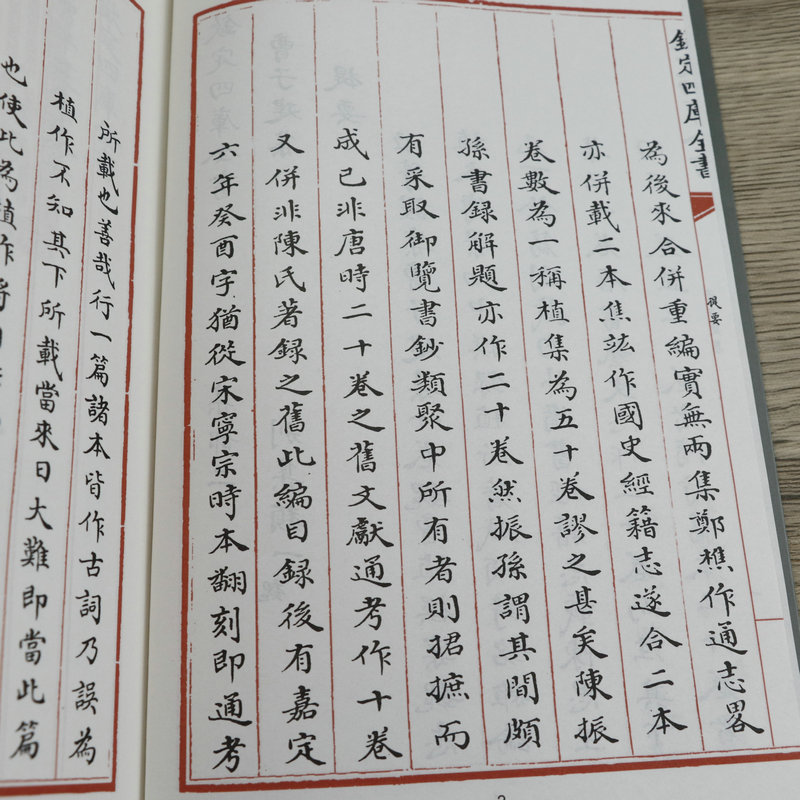 欽定四庫全書
提要
為後來合併重編實無兩集鄭樵作通志畧
亦併載二本焦竑作國史經籍志遂合二本
卷數為一稱植集為五十卷謬之甚矣陳振
孫書録解題亦作二十卷然振孫謂其間頗
有采取御覽書鈔類聚中所有者則捃摭而
成已非唐時二十卷之舊文獻通考作十卷
又併非陳氏著録之舊此編目録後有嘉定
六年癸酉字猶從宋寧宗時本翻刻即通考
所載也善哉行一篇諸本皆作古詞乃誤為
植作不知其下所載當來日大難即當此篇
也使此為植作將